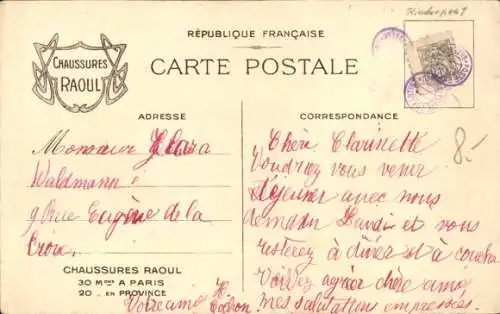 Kinderpost
RÉPUBLIQUE FRANÇAISE
CARTE POSTALE
CHAUSSURES
RAOUL
ADRESSE
Monsieur Clara
Waldmann
9 Rue Eugène de la
Croix.
CHAUSSURES RAOUL
30 Mons A PARIS
20 - EN PROVINCE
CORRESPONDANCE
8.-
Chère Clarinette
Voudriez vous venir
déjeuner avec nous
demain Lundi et vous
resterez à dîner et à coucher
Veuillez agréer chère amie
mes salutations empressées.
Votre amie